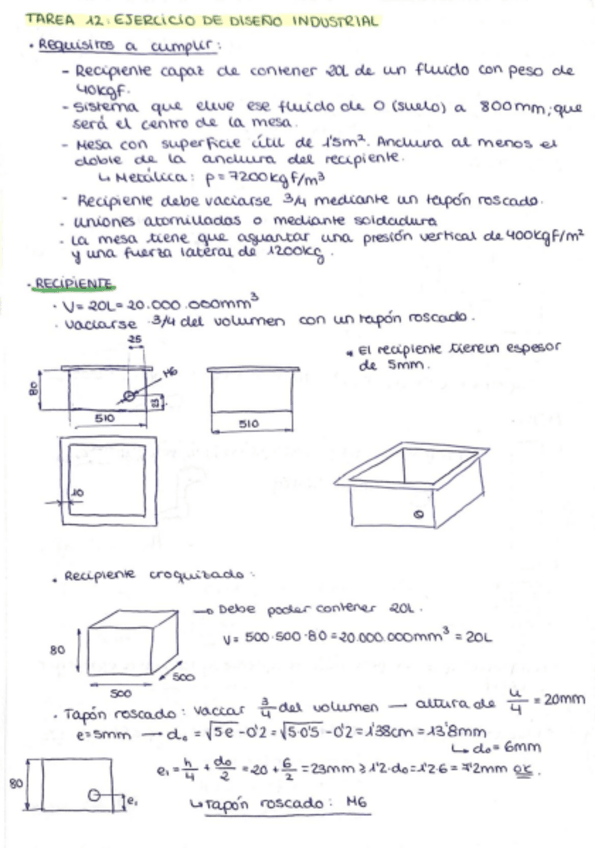 TAREA 12: EJERCICIO DE DISEÑO INDUSTRIAL
· Requisitos a cumplir:
- Recipiente capaz de contener 20L de un fluido con peso de
40kgf.
- Sistema que eleve ese fluido de 0 (suelo) a 800mm, que
será el centro de la mesa.
- Mesa con superficie útil de 1'5m². Anchura al menos el
doble de la anchura del recipiente.
↳ Metálica: p=7200kgf/m³
- Recipiente debe vaciarse 3/4 mediante un tapón roscado.
· Uniones atornilladas o mediante soldadura
· La mesa tiene que aguantar una presión vertical de 400kgf/m²
y una fuerza lateral de 1200kg.
· RECIPIENTE
· V= 20L= 20.000.000mm³
· Vaciarse 3/4 del volumen con un tapón roscado.
25
• El recipiente tiene un espesor
de 5mm.
M6
80
23
510
510
10
· Recipiente croquizado:
→ Debe poder contener 20L.
V= 500·500·80=20.000.000mm³ = 20L
80
500
500
· Tapón roscado: vaciar 3/4 del volumen → altura de u/4 = 20mm
e=5mm → d₀ = √5e -0'2 = √5·0'5 -0'2 = 1'38cm = 13'8mm
↳ d₀= 6mm
e₁ = h/4 + d₀/2 = 20 + 6/2 = 23mm ≥ 1'2·d₀=1'2·6 = 7'2mm ok.
80
e₁
↳ Tapón roscado: M6